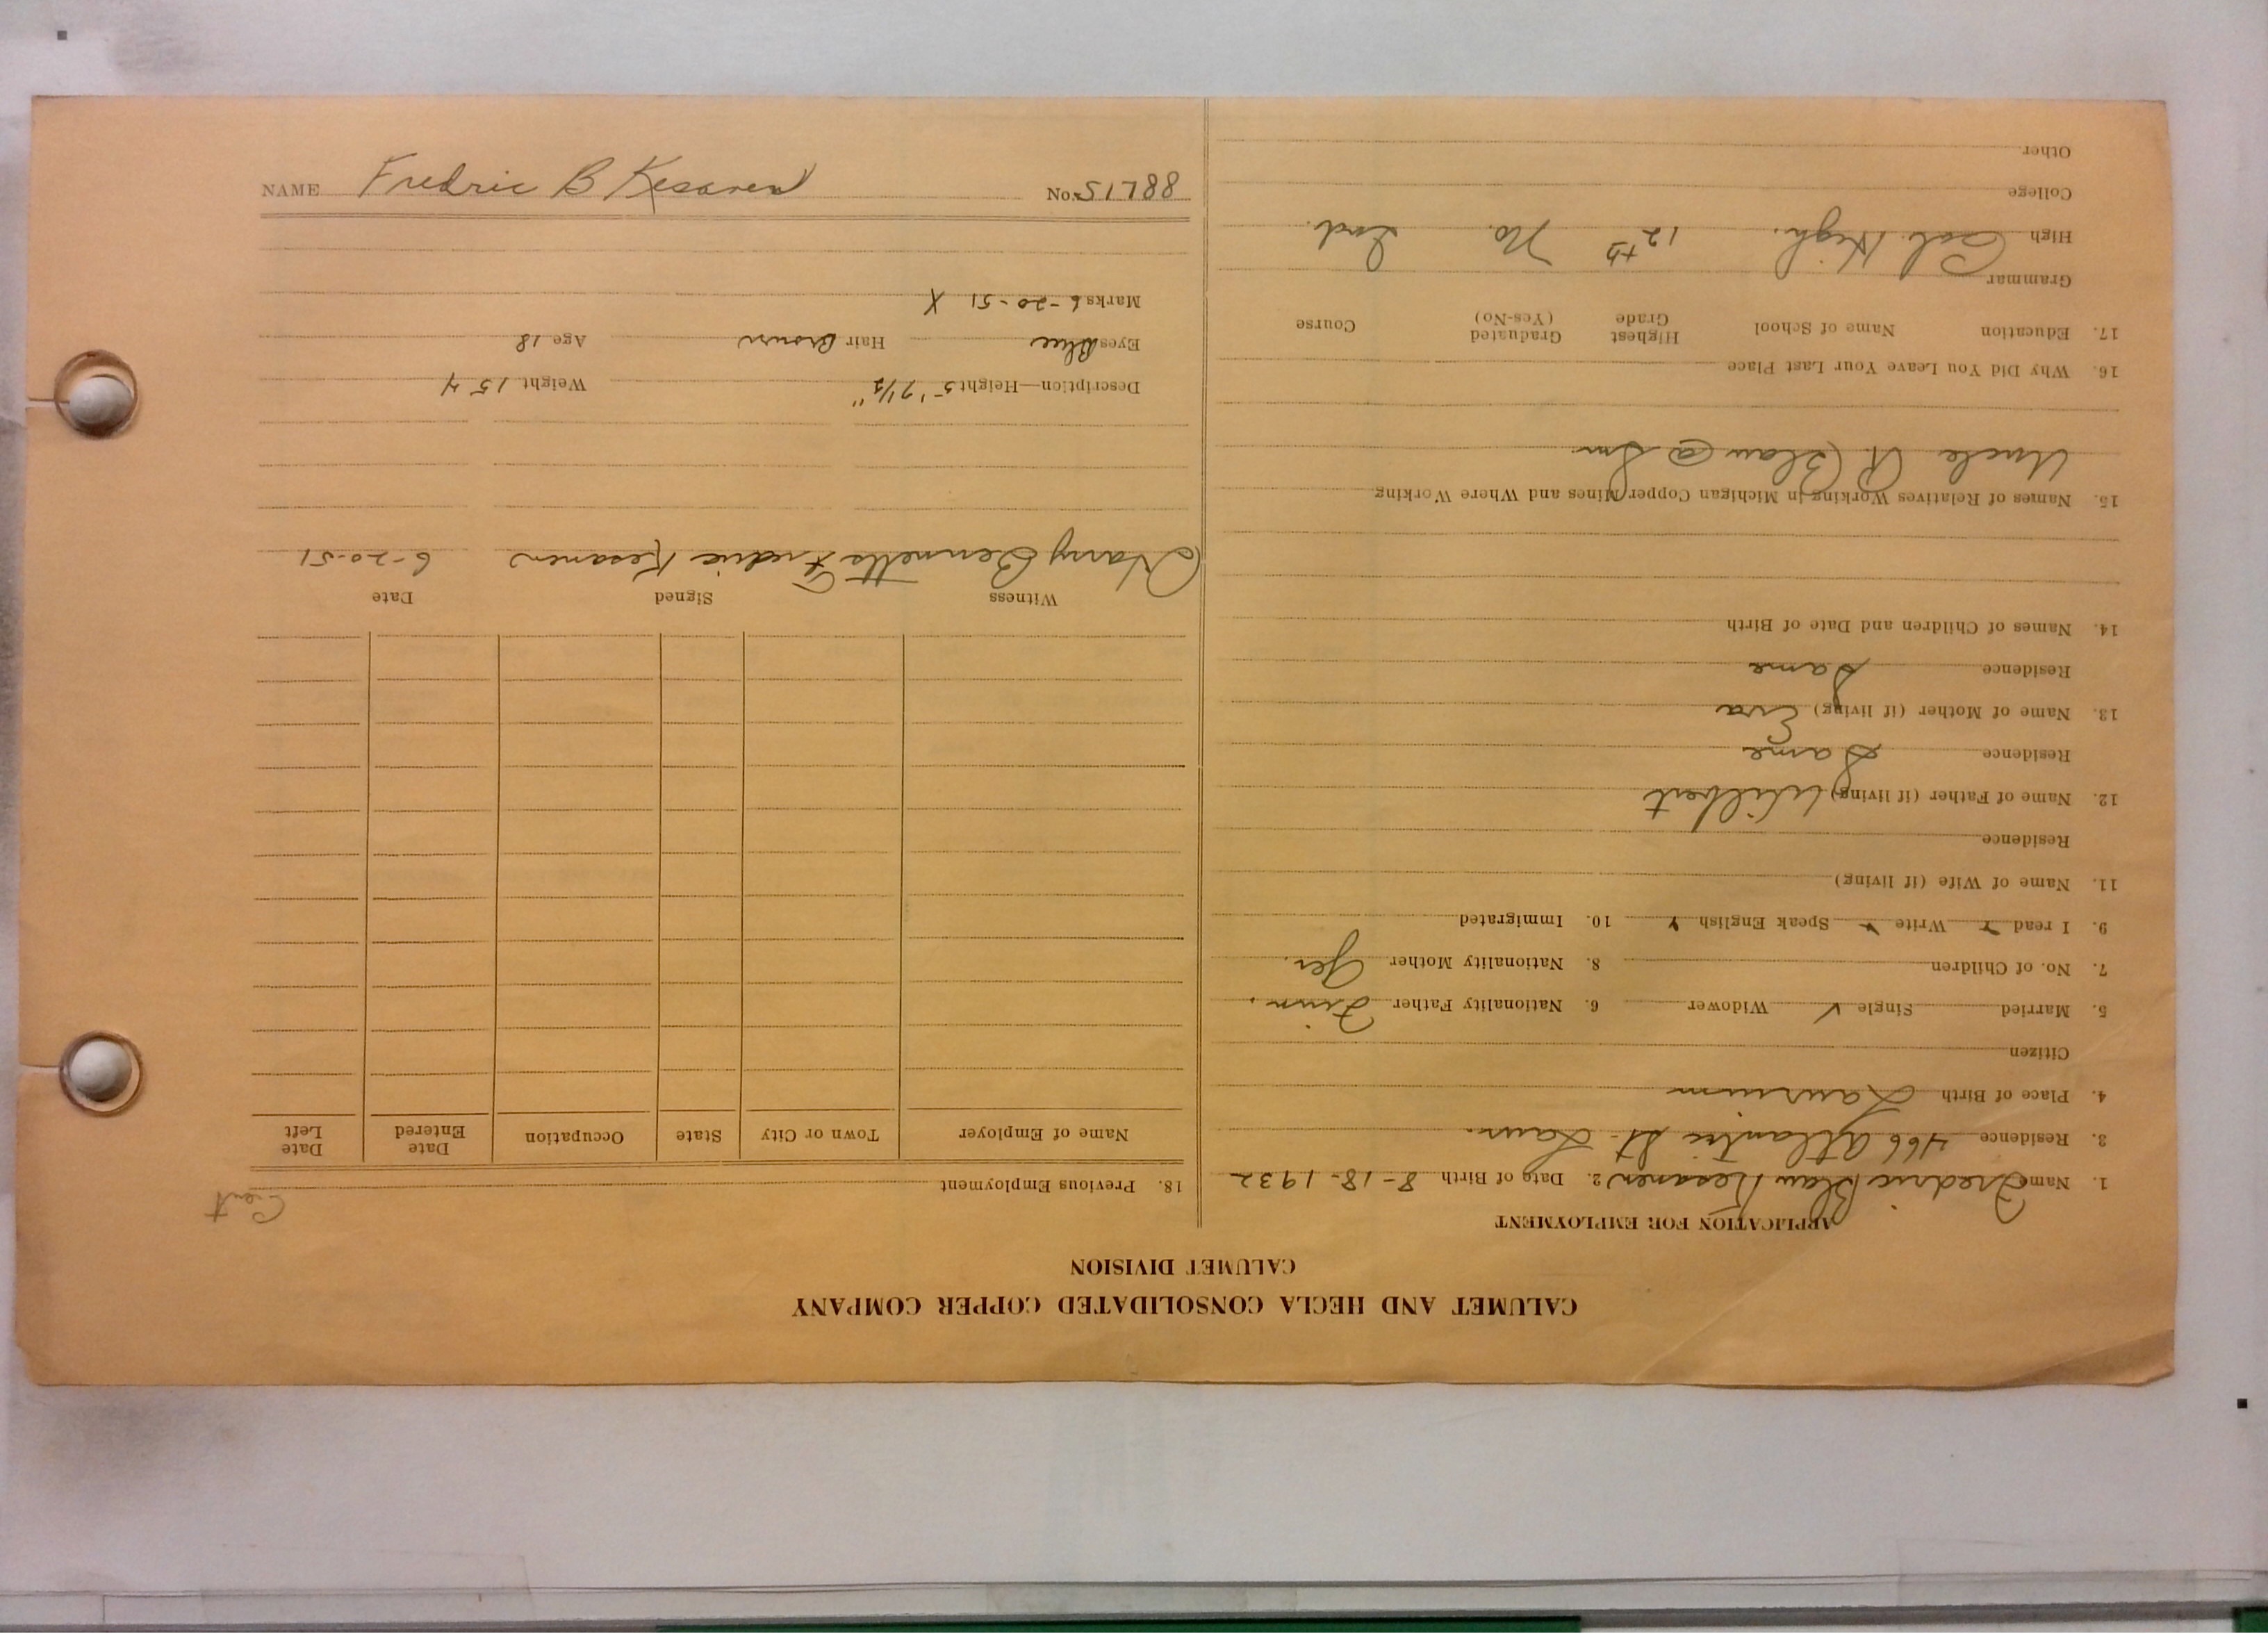 CALUMET AND HECLA CONSOLIDATED COPPER COMPANY
CALUMET DIVISION
APPLICATION FOR EMPLOYMENT
1. Name Fredric Blau Kesanen 2. Date of Birth 8-18-1932
3. Residence 466 Atlantic St. Laur.
4. Place of Birth Laurium
Citizen
5. Married Single ✓ Widower 6. Nationality Father Finn.
7. No. of Children 8. Nationality Mother Ger.
9. I read Y Write Y Speak English Y 10. Immigrated
11. Name of Wife (if living)
Residence
12. Name of Father (if living) Wilbert
Residence Same
13. Name of Mother (if living) Eva
Residence Same
14. Names of Children and Date of Birth
15. Names of Relatives Working in Michigan Copper Mines and Where Working
Uncle R. Blau @ Sm
16. Why Did You Leave Your Last Place
17. Education Name of School Highest Grade Graduated (Yes-No) Course
Grammar
High Cal. High. 12th No. Ind.
College
Other
Cent
18. Previous Employment
Name of Employer Town or City State Occupation Date Entered Date Left
Witness Signed Date
Harry Bennetts Fredric Kesanen 6-20-51
Description—Height 5' 7 1/2" Weight 154
Eyes Blue Hair Brown Age 18
Marks 6-20-51 X
NAME Fredric B Kesanen No. 88L15